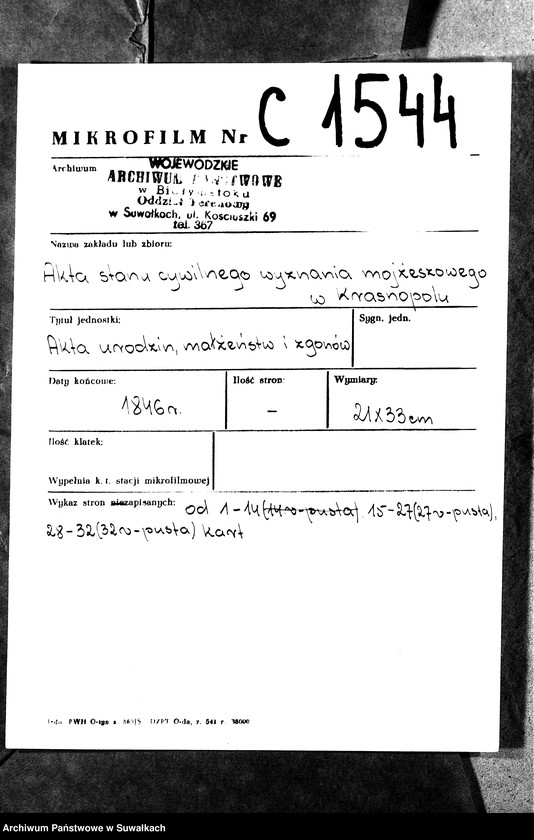 C 1544
MIKROFILM Nr
Archiwum
WOJEWÓDZKIE
ARCHIWUM PAŃSTWOWE
w Białymstoku
Oddział Terenowy
w Suwałkach, ul. Kościuszki 69
tel. 367
Nazwa zakładu lub zbioru:
Akta stanu cywilnego wyznania mojżeszowego
w Krasnopolu
Tytuł jednostki:
Sygn. jedn.
Akta urodzin, małżeństw i zgonów
Daty końcowe:
Ilość stron:
Wymiary:
1846 r.
–
21x33cm
Ilość klatek:
Wypełnia k. t. stacji mikrofilmowej
Wykaz stron niezapisanych: od 1-14(14v-pusta), 15-27(27v-pusta),
28-32(32v-pusta) kart
PWH O-łga z.
O-da, z. 541 r.
Archiwum Państwowe w Suwałkach